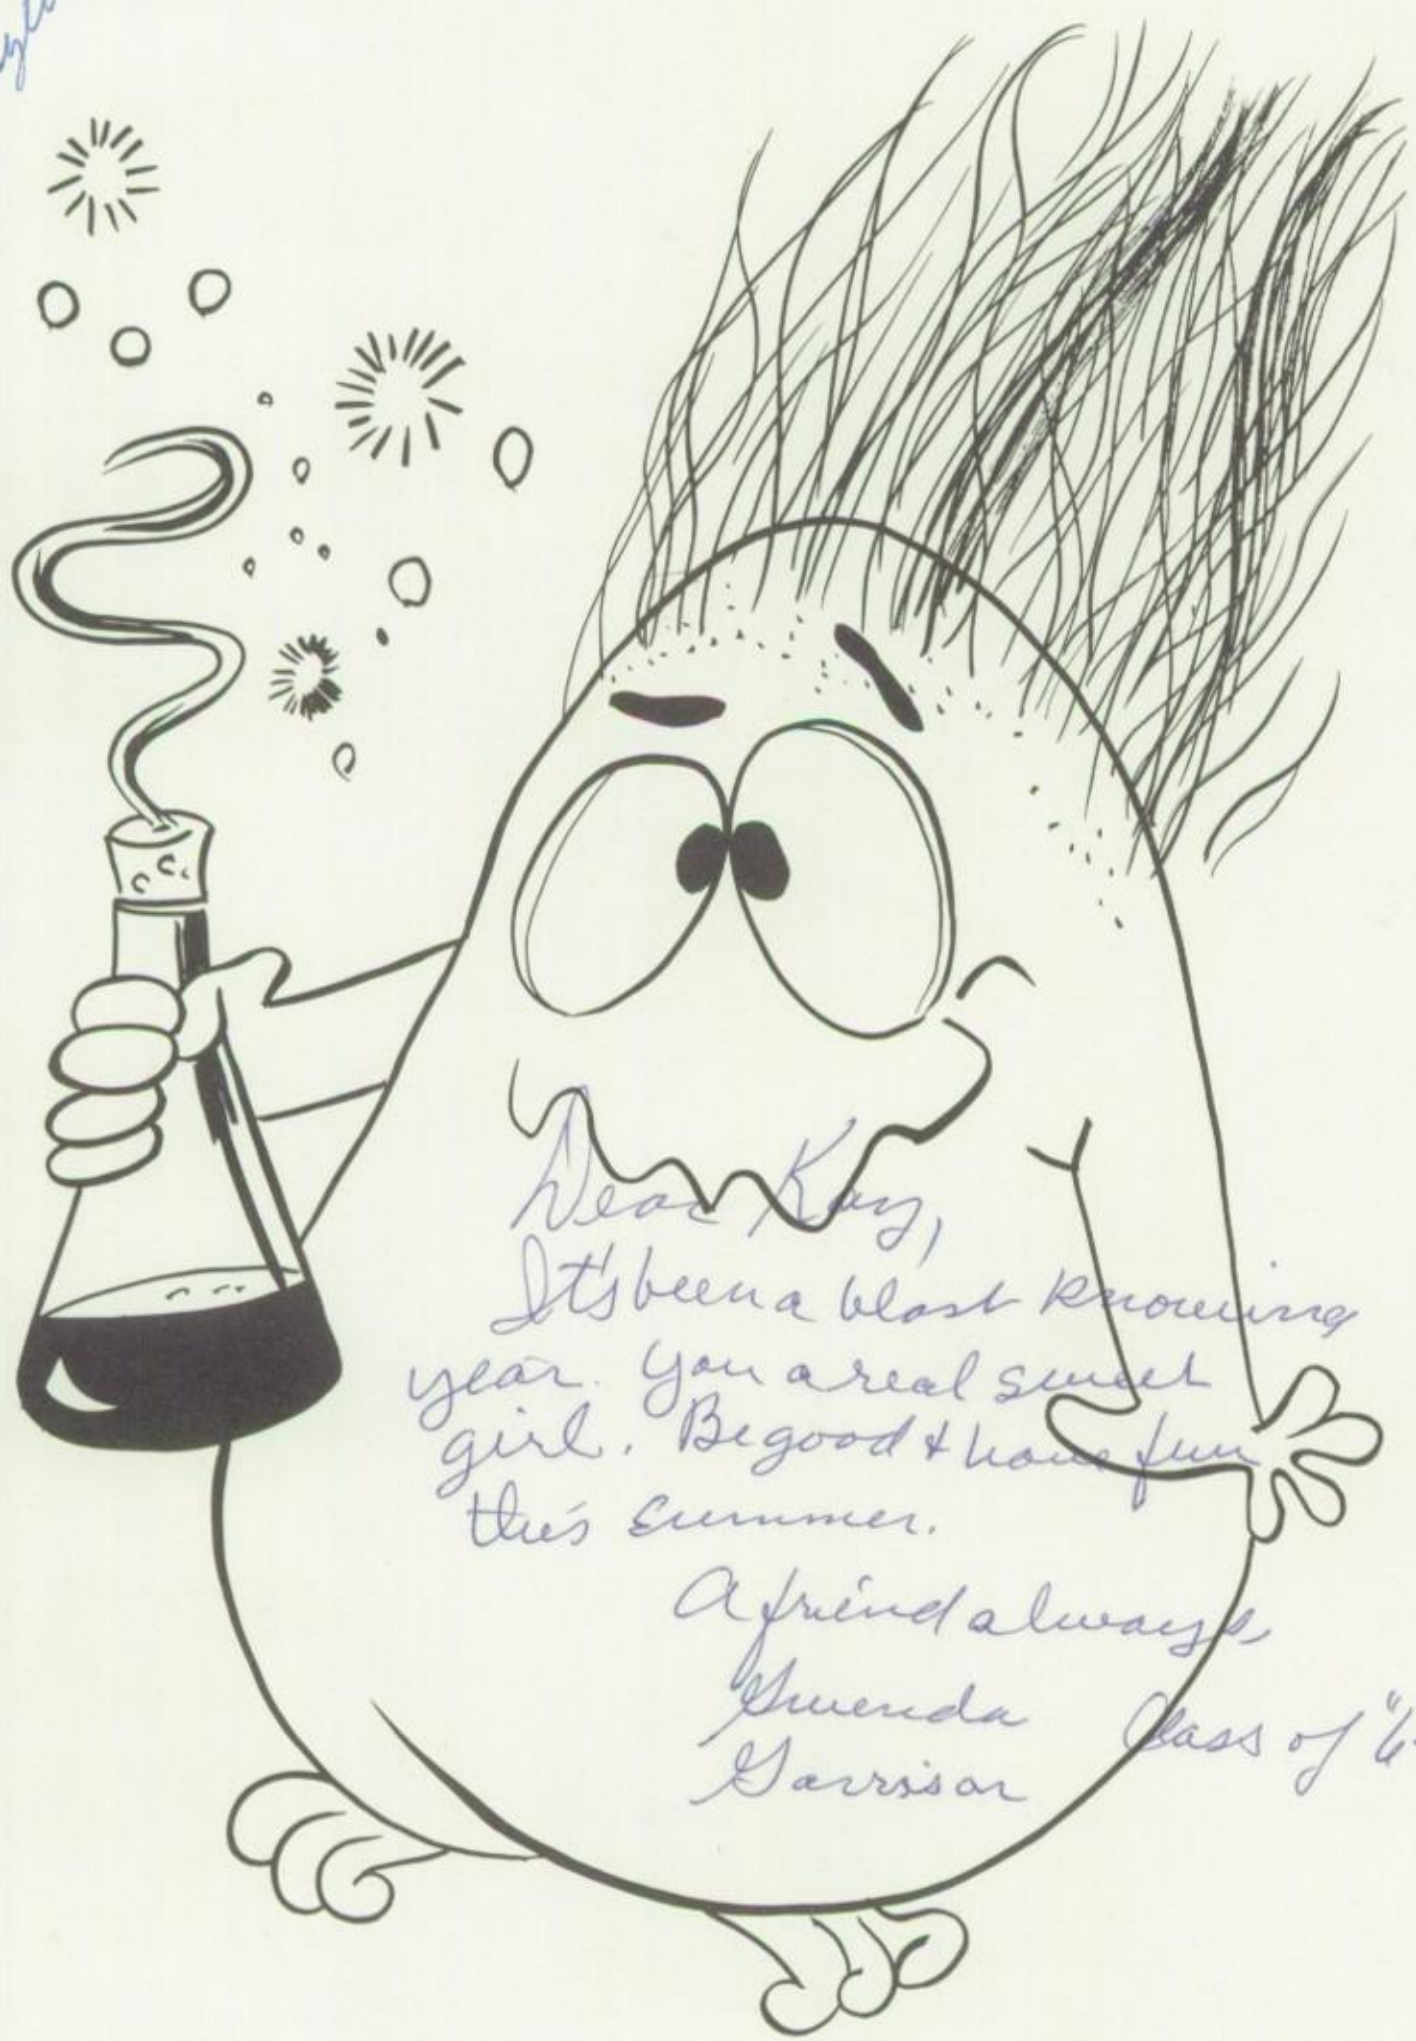 Dear Kay,
It's been a blast knowing
year. You a real sweet
girl. Be good & have fun
this summer.
A friend always,
Gwenda Class of "6
Garrison